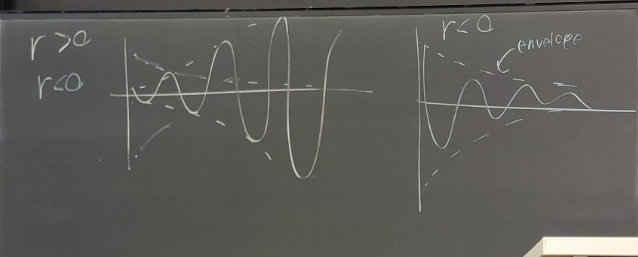 r > 0
r < 0
r < 0
envelope